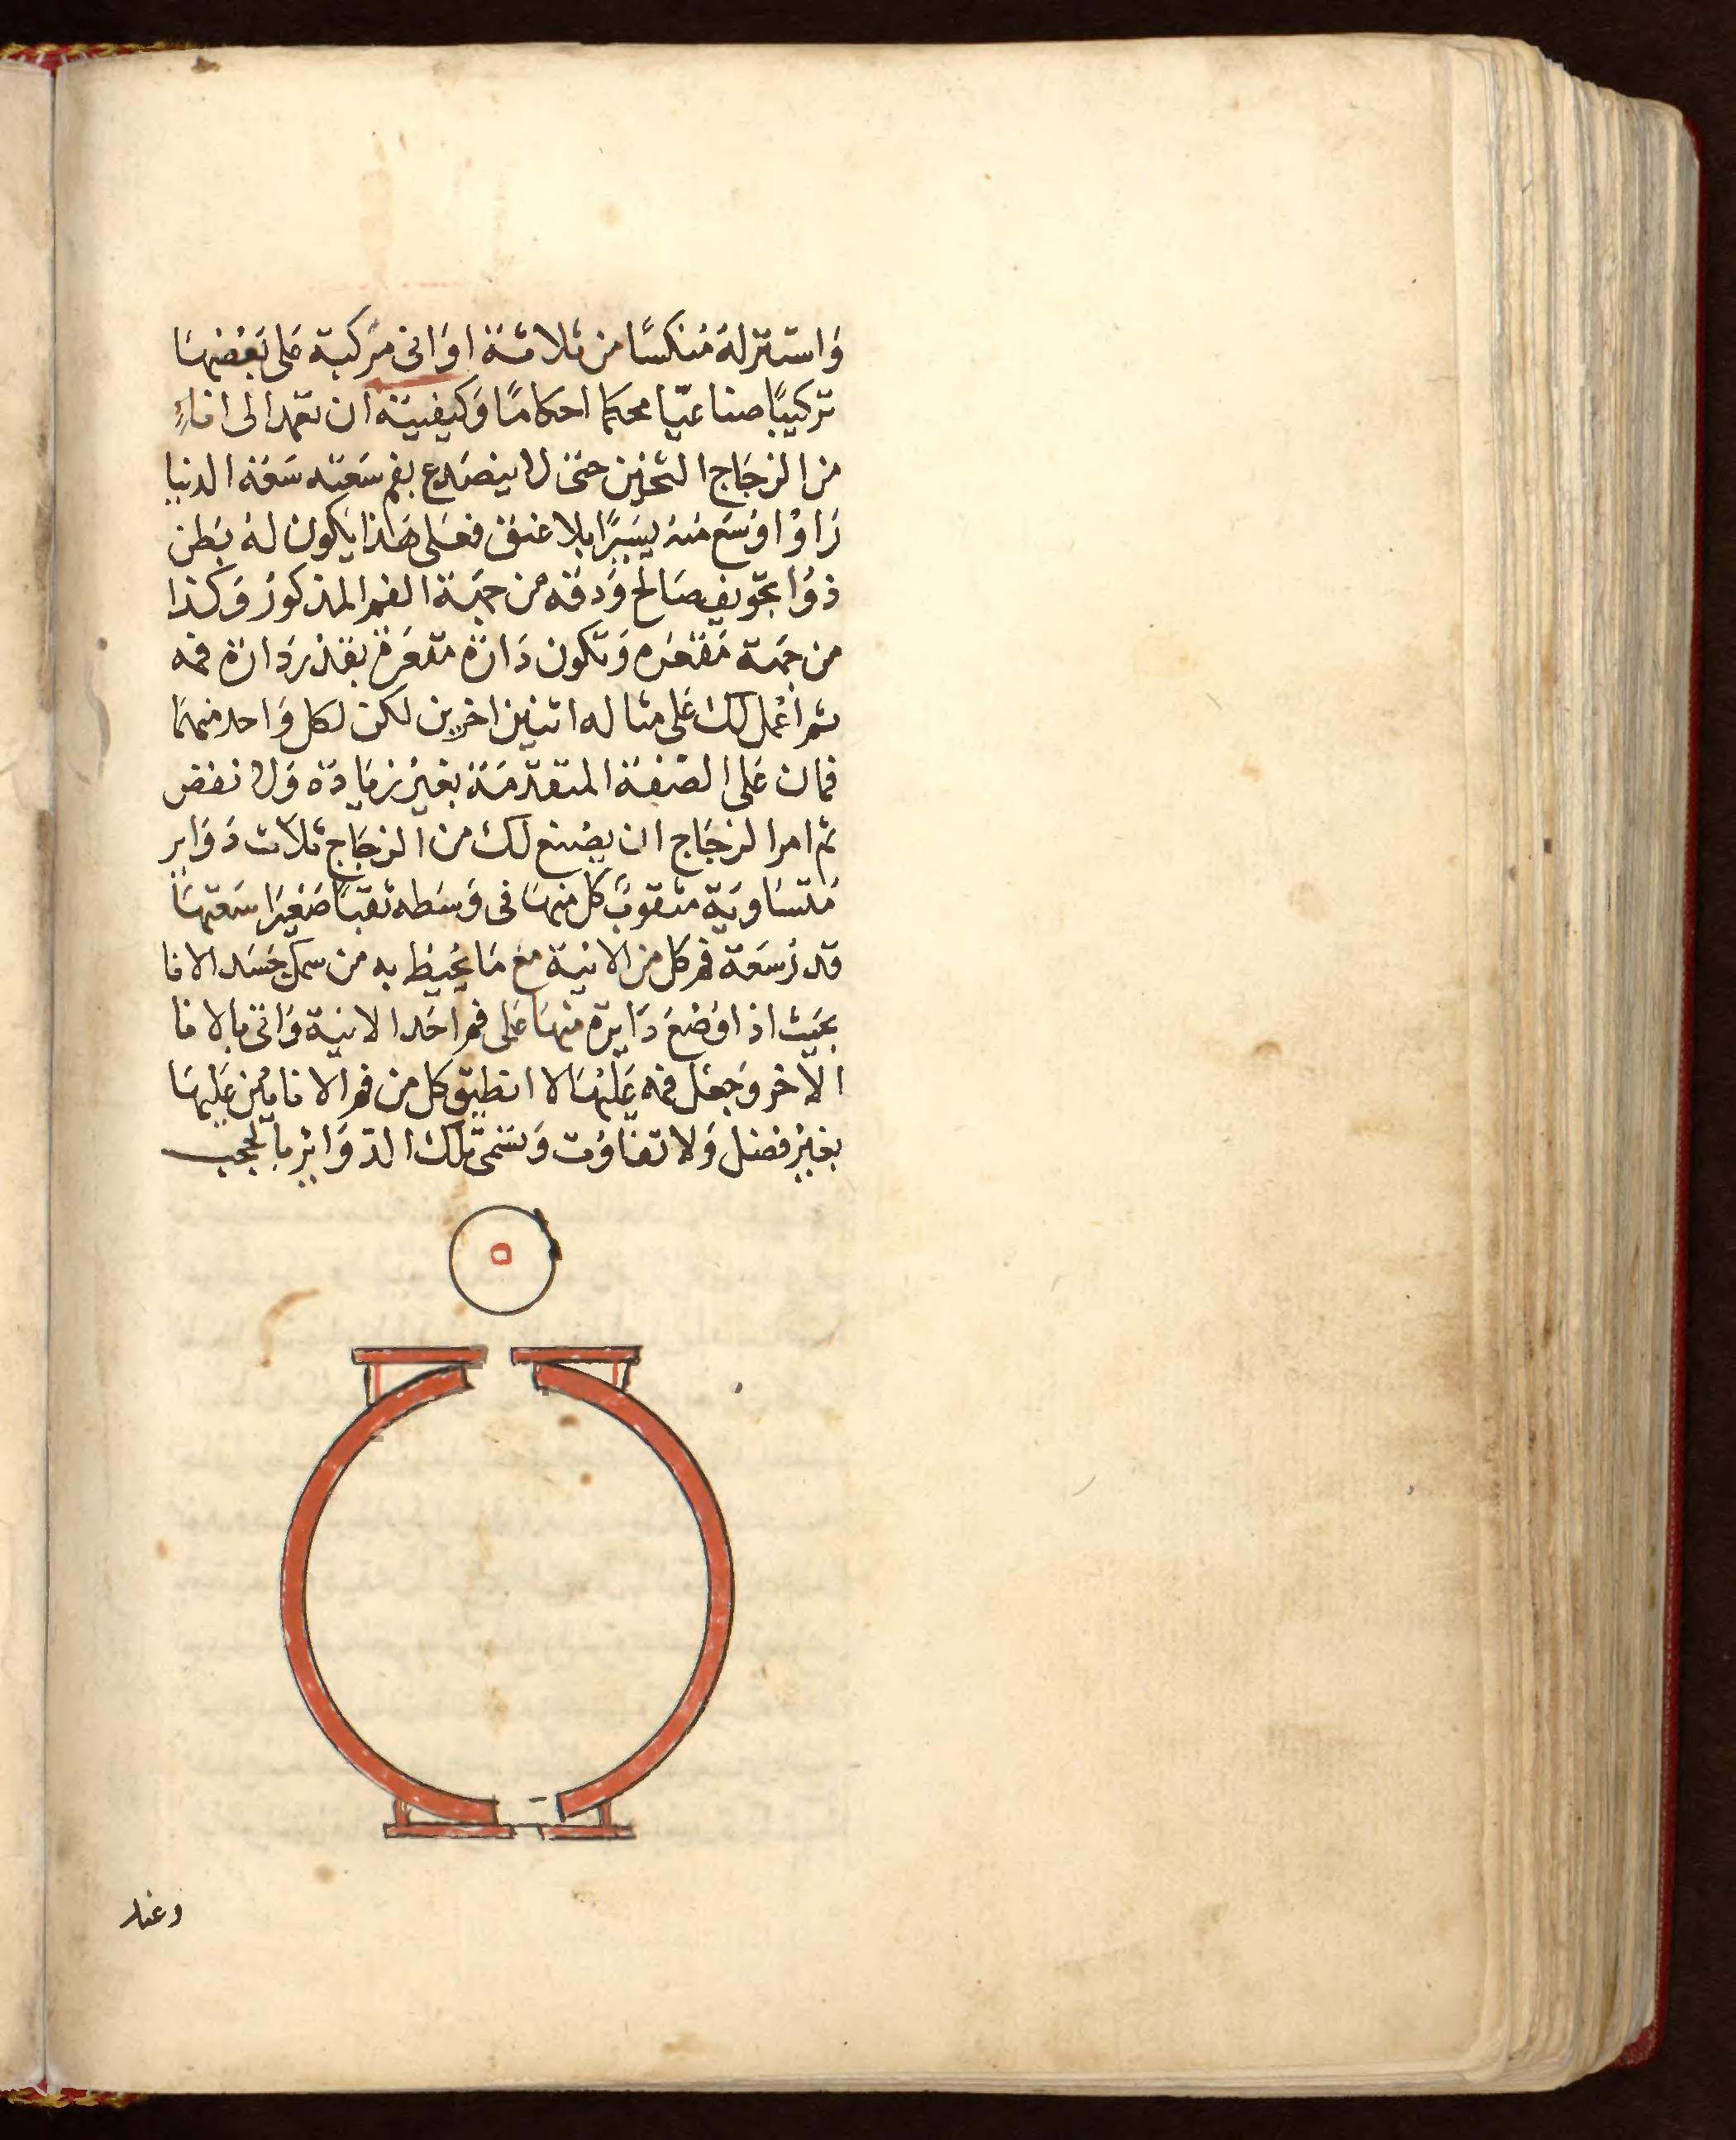 وَاستنزلهُ مُنكسًا من ثلاثة اوَانى مركبة عَلى بَعْضهَا
تركيبًا صناعيّا محكما احكامًا وَكيفيّته ان تعمد الى اناءٍ
من الزجَاج الثخين حتى لا ينصَدع بفم سَعته سَعَة الدنيا
رَا وْاوْسَع مْنهُ يسَيرًا بلا عنق فعَلى هَذا يَكون لهُ بَطن
ذوُا تجويف صَالح وَدقه من جهَة الفم المذكورْ وَكذا
من جهَة مَقعَره وَتكون دَارَة مقعَرة بقدْر دَارَة فمه
ثم اعْمل لك عَلى مثاله اثنين اخرين لكن لكل وَاحد منهمَا
فمان عَلى الصّفة المتقدّمَة بغيْر زيَادَة وَلا نقص
ثم امر الزجَاج ان يصْنع لك من الزجَاج ثلاث دَوَاير
مْتسَاويَة مثقوبْ كل منهَا فى وَسَطه ثقبًا صَغيرَا سَعتهَا
قدرْ سَعَة فم كل من الانيَة مع مَا يحُيط به من سمك جَسَد الانا
بحَيث اذا وَضْعَ دَايرة منهَا عَلى فم احَد الانية وَاتى بالانا
الاخر وَجعَل فمه عَليْهَا لا انطبق كل من فم الانايْن عَليهَا
بغيْر فضل وَلا تفاوُت وَتسَمى تلك الدّوَايْر بالحجب
وعند